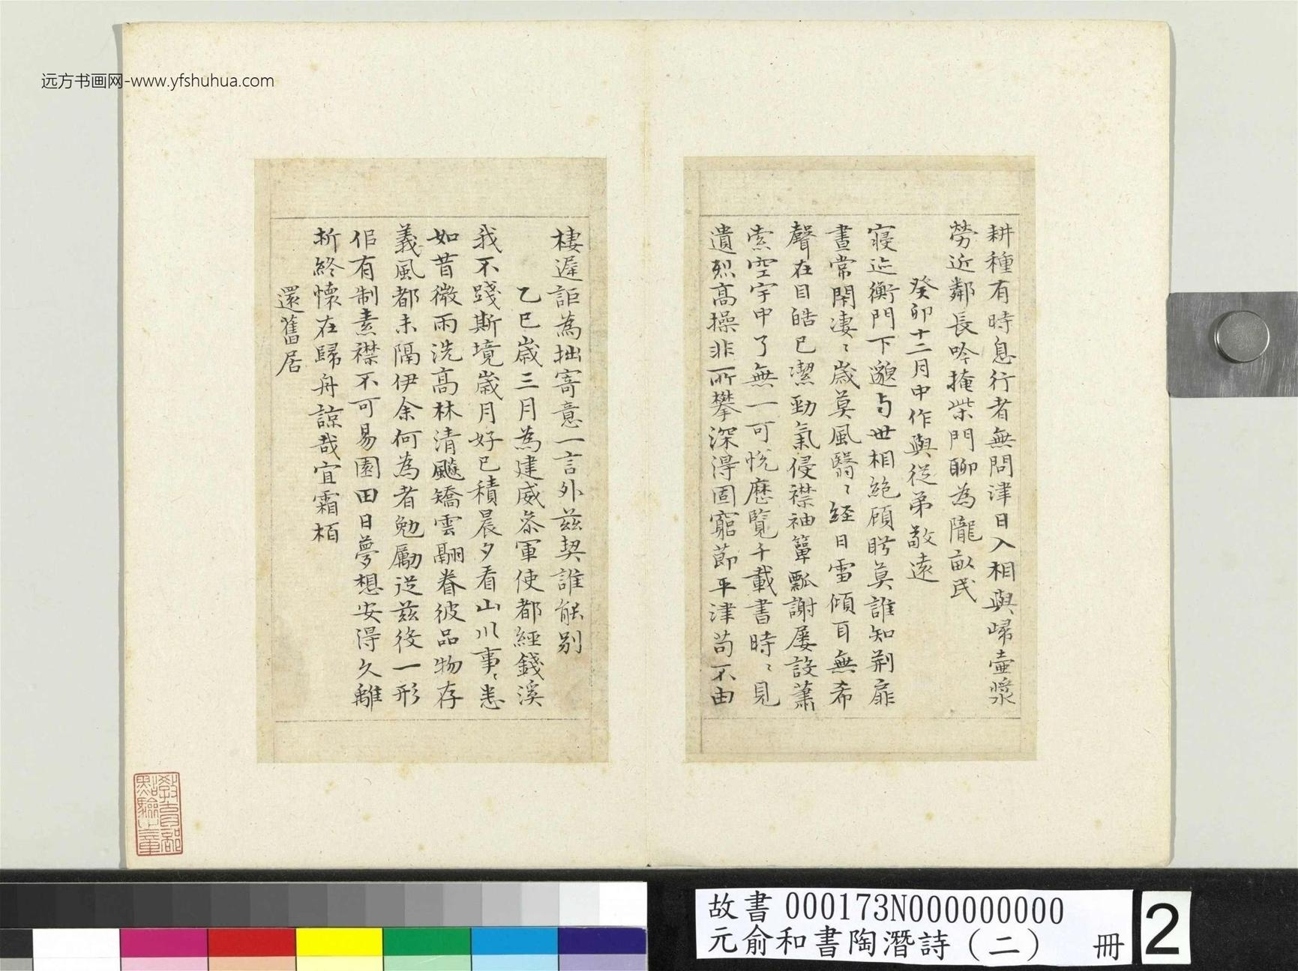 远方书画网-www.yfshuhua.com
耕種有時息行者無問津日入相與歸壺漿
勞近鄰長吟掩柴門聊為隴畝民
癸卯十二月中作與從弟敬遠
寢迹衡門下邈与世相絶顧眄莫誰知荆扉
晝常閇凄〻歲莫風翳〻經日雪傾耳無希
聲在目皓已潔勁氣侵襟袖簞瓢謝屢設蕭
索空宇中了無一可悅歷覽千載書時〻見
遺烈高操非所攀深淂固窮節平津苟不由
棲遲詎為拙寄意一言外茲契誰能别
乙巳歲三月為建威叅軍使都經錢溪
我不踐斯境歲月好已積晨夕看山川事〻悉
如昔微雨洗高林清飈矯雲翮眷彼品物存
義風都未隔伊余何為者勉勵從茲役一形
佀有制素襟不可易園田日夢想安得久離
析終懷在歸舟諒哉宜霜栢
還舊居
教育部點驗之章
故書 000173N000000000
元俞和書陶潛詩（二） 冊
2